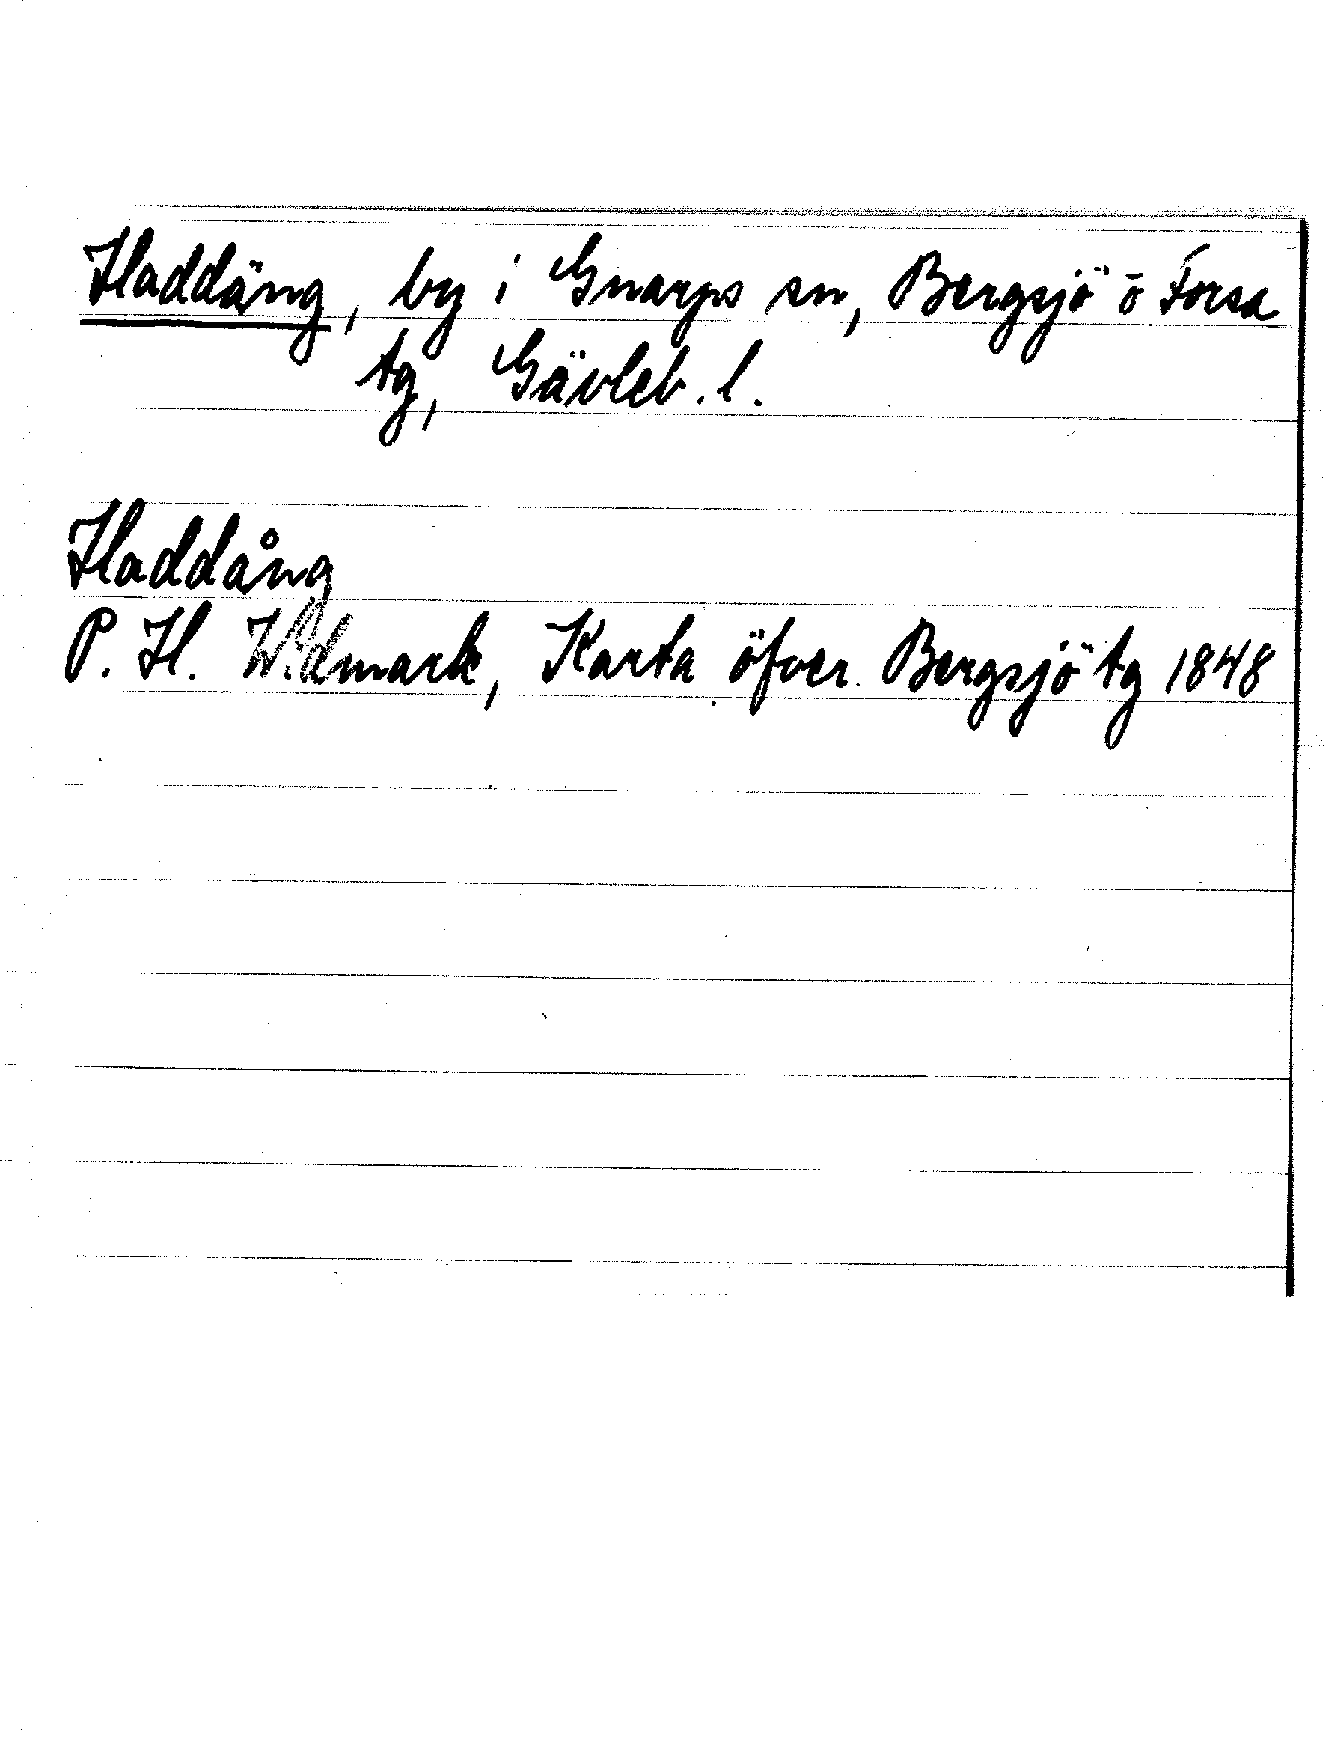 Haddäng, by i Gnarps sn, Bergsjö o Forsa
tg, Gävleb. l.
Haddång
P. H. Widmark, Karta öfver Bergsjö tg 1848